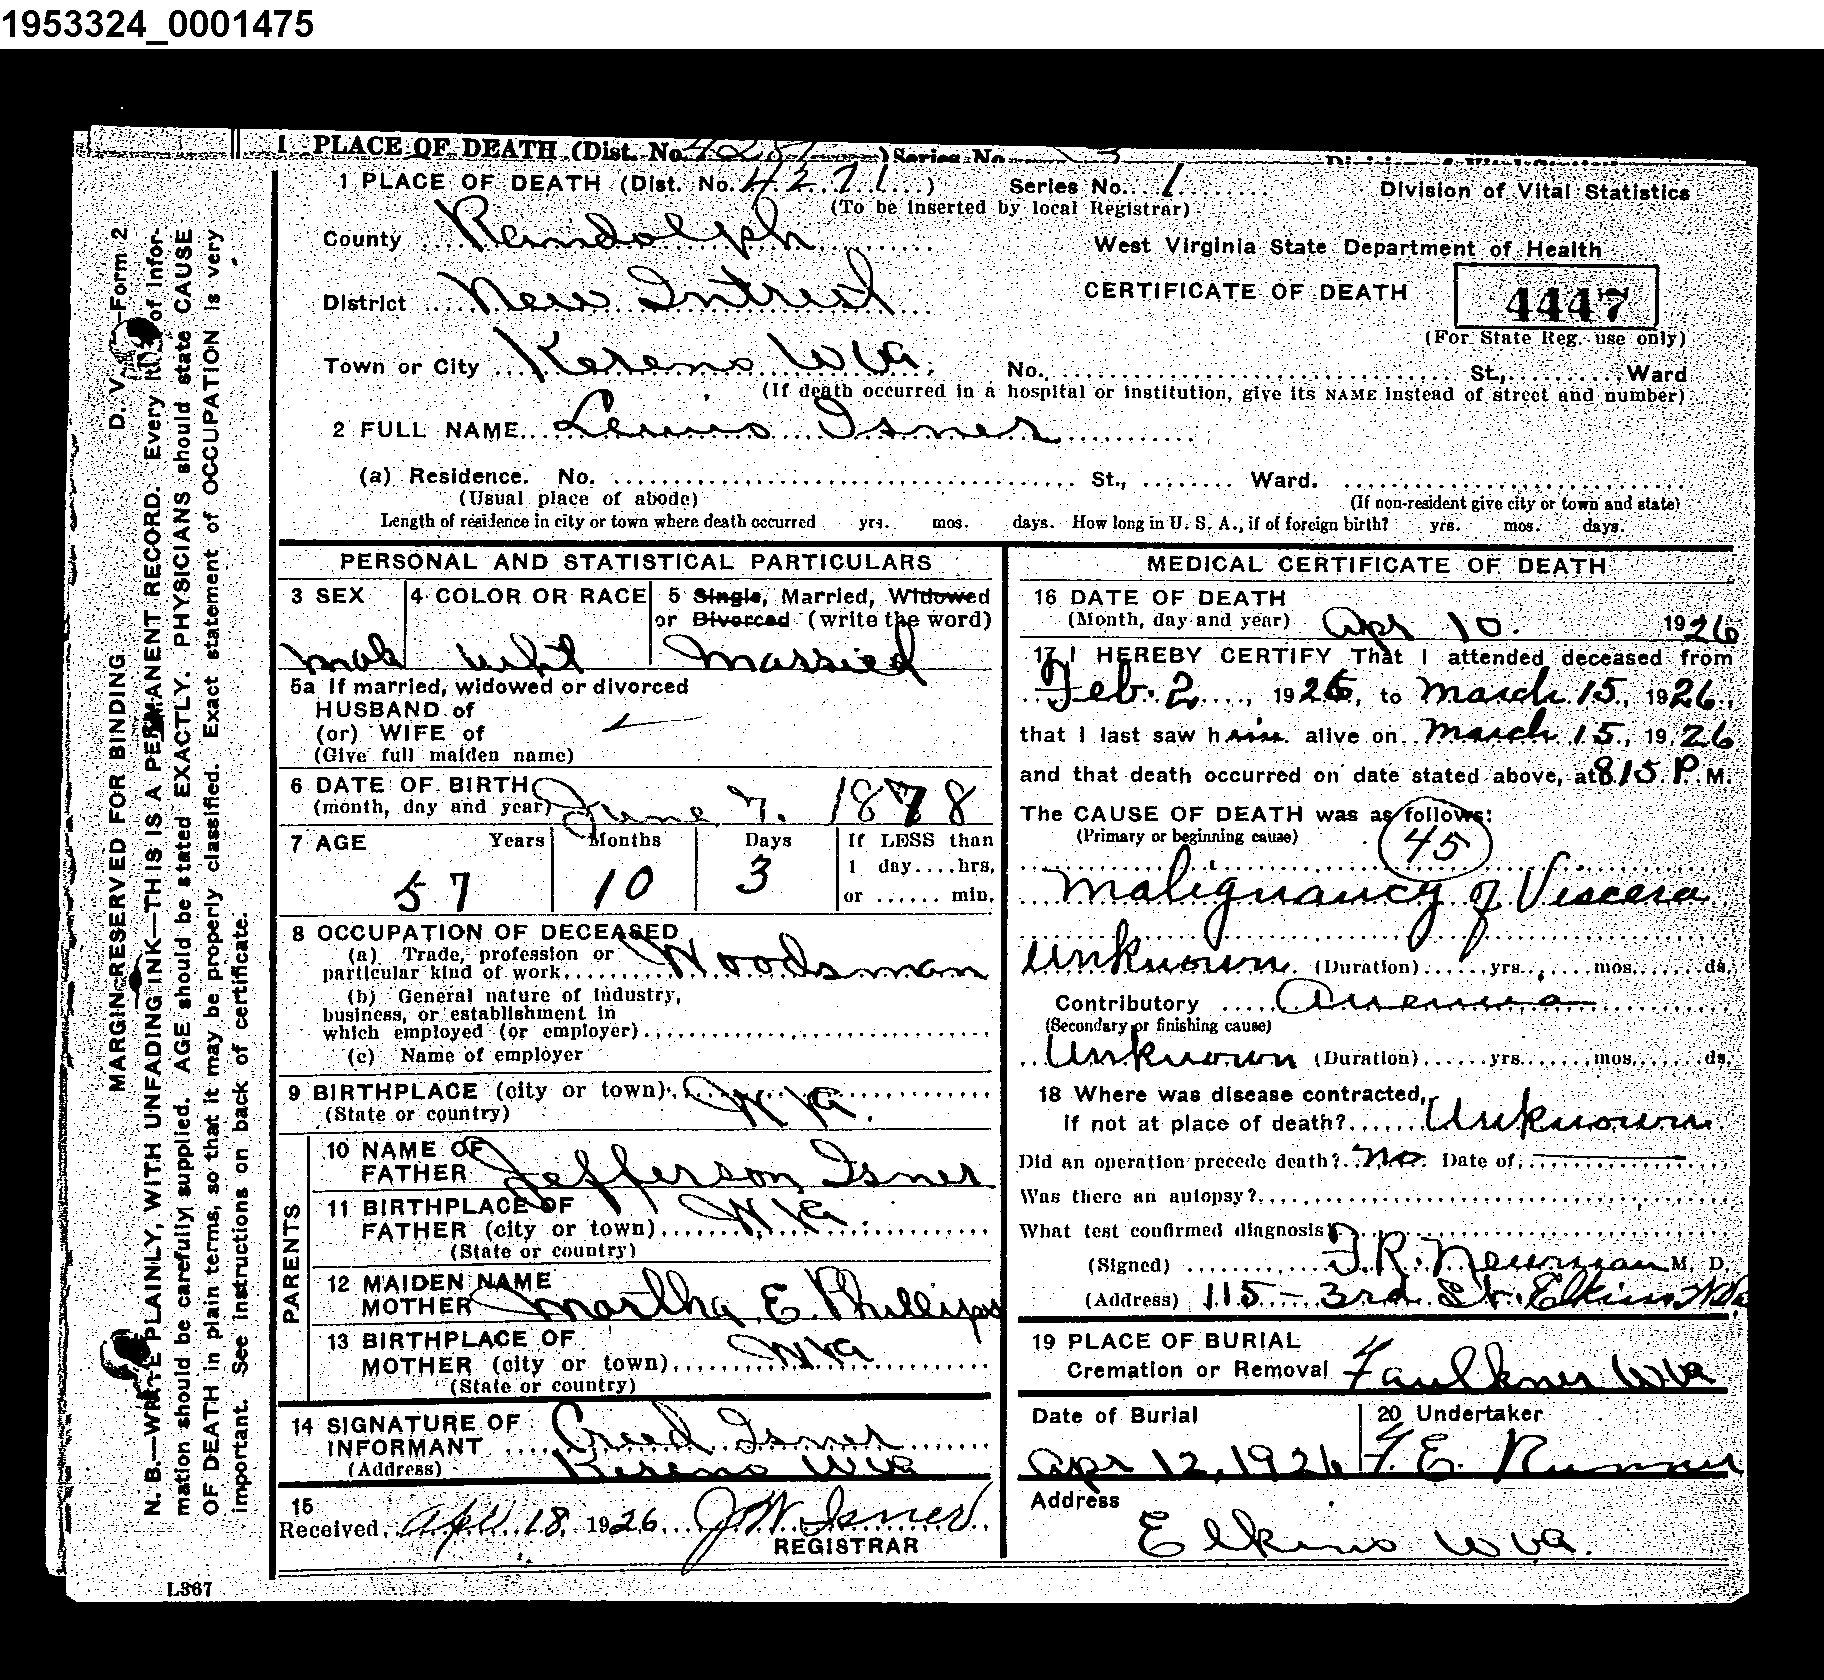 1953324_0001475
1 PLACE OF DEATH (Dist. No. ) Series No.
1 PLACE OF DEATH (Dist. No. 4271) Series No. 1 Division of Vital Statistics
(To be inserted by local Registrar)
County Randolph
West Virginia State Department of Health
District New Intrest
CERTIFICATE OF DEATH 4447
(For State Reg. use only)
Town or City Kerens WVa. No. St., Ward
(If death occurred in a hospital or institution, give its NAME instead of street and number)
2 FULL NAME Lewis Isner
(a) Residence. No. St., Ward.
(Usual place of abode) (If non-resident give city or town and state)
Length of residence in city or town where death occurred yrs. mos. days. How long in U. S. A., if of foreign birth? yrs. mos. days.
PERSONAL AND STATISTICAL PARTICULARS
3 SEX 4 COLOR OR RACE 5 Single, Married, Widowed
or Divorced (write the word)
Male Whit Married
5a If married, widowed or divorced
HUSBAND of
(or) WIFE of
(Give full maiden name)
6 DATE OF BIRTH
(month, day and year) June 7. 1878
7 AGE Years Months Days If LESS than
1 day....hrs.
or ...... min.
57 10 3
8 OCCUPATION OF DECEASED
(a) Trade, profession or
particular kind of work Woodsman
(b) General nature of industry,
business, or establishment in
which employed (or employer)
(c) Name of employer
9 BIRTHPLACE (city or town)
(State or country) WVa.
PARENTS
10 NAME OF
FATHER Jefferson Isner
11 BIRTHPLACE OF
FATHER (city or town) WVa.
(State or country)
12 MAIDEN NAME
MOTHER Martha E. Phillips
13 BIRTHPLACE OF
MOTHER (city or town) WVa
(State or country)
14 SIGNATURE OF
INFORMANT Creed Isner
(Address) Kerens WVa
15
Received, Apl 18 1926 J W Isner
REGISTRAR
MEDICAL CERTIFICATE OF DEATH
16 DATE OF DEATH
(Month, day and year) Apr 10. 1926
17 I HEREBY CERTIFY That I attended deceased from
Feb. 2, 1926, to March 15, 1926,
that I last saw him alive on March 15, 1926
and that death occurred on date stated above, at 815 P. M.
The CAUSE OF DEATH was as follows:
(Primary or beginning cause) 45
Malignancy of Viscera
Unknown (Duration) yrs. mos. ds.
Contributory Anemia
(Secondary or finishing cause)
Unknown (Duration) yrs. mos. ds.
18 Where was disease contracted,
if not at place of death? Unknown
Did an operation precede death? No. Date of
Was there an autopsy?
What test confirmed diagnosis?
(Signed) F.R. Newman M. D.
(Address) 115 - 3rd St. Elkins WVa
19 PLACE OF BURIAL
Cremation or Removal Faulkner WVa
Date of Burial 20 Undertaker
Apr 12, 1926 F. E. Runner
Address
Elkins WVa.
D. V. —Form 2
MARGIN RESERVED FOR BINDING
N. B.—WRITE PLAINLY, WITH UNFADING INK—THIS IS A PERMANENT RECORD. Every of infor-
mation should be carefully supplied. AGE should be stated EXACTLY. PHYSICIANS should state CAUSE
OF DEATH in plain terms, so that it may be properly classified. Exact statement of OCCUPATION is very
important. See instructions on back of certificate.
L367